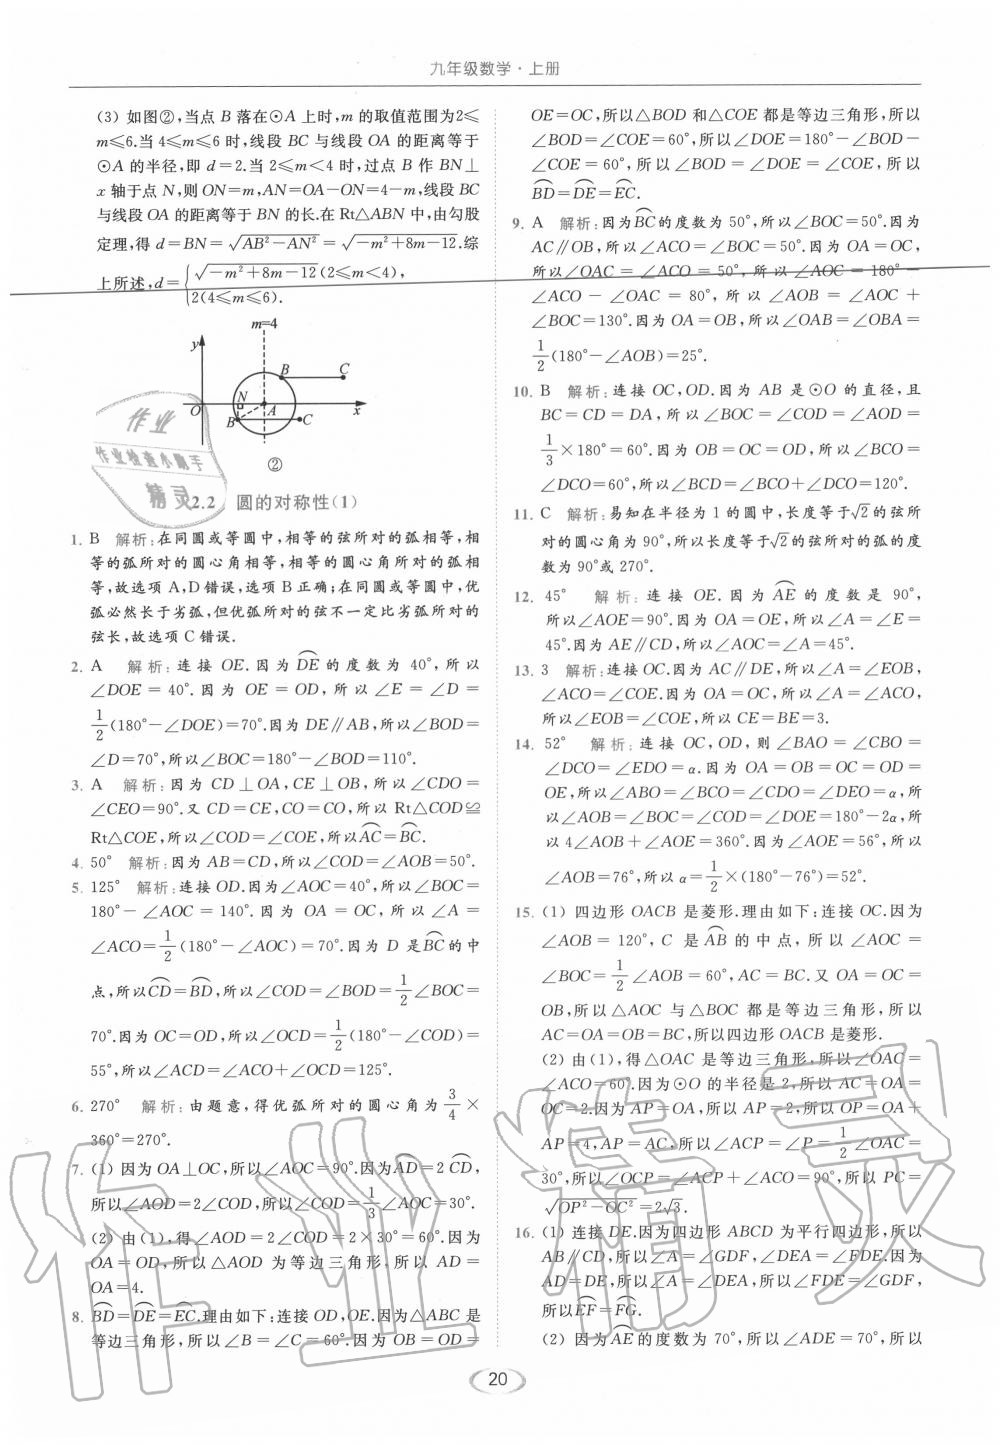 九年级数学·上册
(3) 如图②,当点 B 落在⊙A 上时,m 的取值范围为2≤
m≤6.当 4≤m≤6 时,线段 BC 与线段 OA 的距离等于
⊙A 的半径,即 d=2.当 2≤m<4 时,过点 B 作 BN⊥
x 轴于点 N,则 ON=m,AN=OA-ON=4-m,线段 BC
与线段 OA 的距离等于 BN 的长.在 Rt△ABN 中,由勾股
定理,得 d=BN=√(AB²-AN²)=√(-m²+8m-12).综
上所述,d={√(-m²+8m-12)(2≤m<4),
2(4≤m≤6).
m=4
y
B C
N
O A x
B C
②
2.2 圆的对称性(1)
1. B 解析:在同圆或等圆中,相等的弦所对的弧相等,相
等的弧所对的圆心角相等,相等的圆心角所对的弧相
等,故选项 A,D 错误,选项 B 正确;在同圆或等圆中,优
弧必然长于劣弧,但优弧所对的弦不一定比劣弧所对的
弦长,故选项 C 错误.
2. A 解析:连接 OE.因为 D͡E 的度数为 40°,所以
∠DOE = 40°.因为 OE = OD,所以 ∠E = ∠D =
1/2(180°-∠DOE)=70°.因为 DE∥AB,所以∠BOD=
∠D=70°,所以∠BOC=180°-∠BOD=110°.
3. A 解析:因为 CD⊥OA,CE⊥OB,所以∠CDO=
∠CEO=90°.又 CD=CE,CO=CO,所以 Rt△COD≌
Rt△COE,所以∠COD=∠COE,所以A͡C=B͡C.
4. 50° 解析:因为 AB=CD,所以∠COD=∠AOB=50°.
5. 125° 解析:连接 OD.因为∠AOC=40°,所以∠BOC=
180°-∠AOC = 140°.因为 OA = OC,所以 ∠A =
∠ACO=1/2(180°-∠AOC)=70°.因为 D 是B͡C的中
点,所以C͡D=B͡D,所以∠COD=∠BOD=1/2∠BOC=
70°.因为 OC=OD,所以∠OCD=1/2(180°-∠COD)=
55°,所以∠ACD=∠ACO+∠OCD=125°.
6. 270° 解析:由题意,得优弧所对的圆心角为 3/4×
360°=270°.
7. (1) 因为 OA⊥OC,所以∠AOC=90°.因为A͡D=2 C͡D,
所以∠AOD=2∠COD,所以∠COD=1/3∠AOC=30°.
(2) 由(1),得∠AOD=2∠COD=2×30°=60°.因为
OA=OD,所以△AOD 为等边三角形,所以 AD=
OA=4.
8. B͡D=D͡E=E͡C.理由如下:连接 OD,OE.因为△ABC 是
等边三角形,所以∠B=∠C=60°.因为 OB=OD=
OE=OC,所以△BOD 和△COE 都是等边三角形,所以
∠BOD=∠COE=60°,所以∠DOE=180°-∠BOD-
∠COE=60°,所以∠BOD=∠DOE=∠COE,所以
B͡D=D͡E=E͡C.
9. A 解析:因为B͡C的度数为 50°,所以∠BOC=50°.因为
AC∥OB,所以∠ACO=∠BOC=50°.因为 OA=OC,
所以∠OAC=∠ACO=50°,所以∠AOC=180°-
∠ACO-∠OAC=80°,所以∠AOB=∠AOC+
∠BOC=130°.因为 OA=OB,所以∠OAB=∠OBA=
1/2(180°-∠AOB)=25°.
10. B 解析:连接 OC,OD.因为 AB 是⊙O 的直径,且
BC=CD=DA,所以∠BOC=∠COD=∠AOD=
1/3×180°=60°.因为 OB=OC=OD,所以∠BCO=
∠DCO=60°,所以∠BCD=∠BCO+∠DCO=120°.
11. C 解析:易知在半径为 1 的圆中,长度等于√2的弦所
对的圆心角为 90°,所以长度等于√2的弦所对的弧的度
数为 90°或 270°.
12. 45° 解析:连接 OE.因为 A͡E 的度数是 90°,
所以∠AOE=90°.因为 OA=OE,所以∠A=∠E=
45°.因为 AE∥CD,所以∠AOC=∠A=45°.
13. 3 解析:连接 OC.因为 AC∥DE,所以∠A=∠EOB,
∠ACO=∠COE.因为 OA=OC,所以∠A=∠ACO,
所以∠EOB=∠COE,所以 CE=BE=3.
14. 52° 解析:连接 OC,OD,则∠BAO=∠CBO=
∠DCO=∠EDO=α.因为 OA=OB=OC=OD=
OE,所以∠ABO=∠BCO=∠CDO=∠DEO=α,所
以∠AOB=∠BOC=∠COD=∠DOE=180°-2α,所
以 4∠AOB+∠AOE=360°.因为∠AOE=56°,所以
∠AOB=76°,所以 α=1/2×(180°-76°)=52°.
15. (1) 四边形 OACB 是菱形.理由如下:连接 OC.因为
∠AOB=120°,C 是 A͡B 的中点,所以∠AOC=
∠BOC=1/2∠AOB=60°,AC=BC.又 OA=OC=
OB,所以△AOC 与△BOC 都是等边三角形,所以
AC=OA=OB=BC,所以四边形 OACB 是菱形.
(2) 由(1),得△OAC 是等边三角形,所以∠OAC=
∠ACO=60°.因为⊙O 的半径是 2,所以 AC=OA=
OC=2.因为 AP=OA,所以 AP=2,所以 OP=OA+
AP=4,AP=AC,所以∠ACP=∠P=1/2∠OAC=
30°,所以∠OCP=∠ACP+∠ACO=90°,所以 PC=
√(OP²-OC²)=2√3.
16. (1) 连接 DE.因为四边形 ABCD 为平行四边形,所以
AB∥CD,所以∠A=∠GDF,∠DEA=∠FDE.因为
AD=DE,所以∠A=∠DEA,所以∠FDE=∠GDF,
所以E͡F=F͡G.
(2) 因为A͡E的度数为 70°,所以∠ADE=70°,所以
20
作业
作业检查小助手
精灵
作业精灵